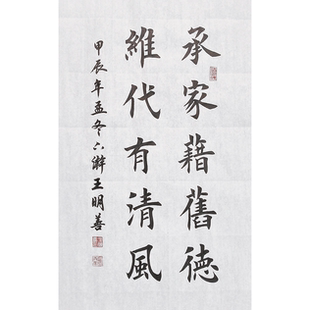 承家藉舊德
維代有清風
甲辰年孟冬六澥王明善